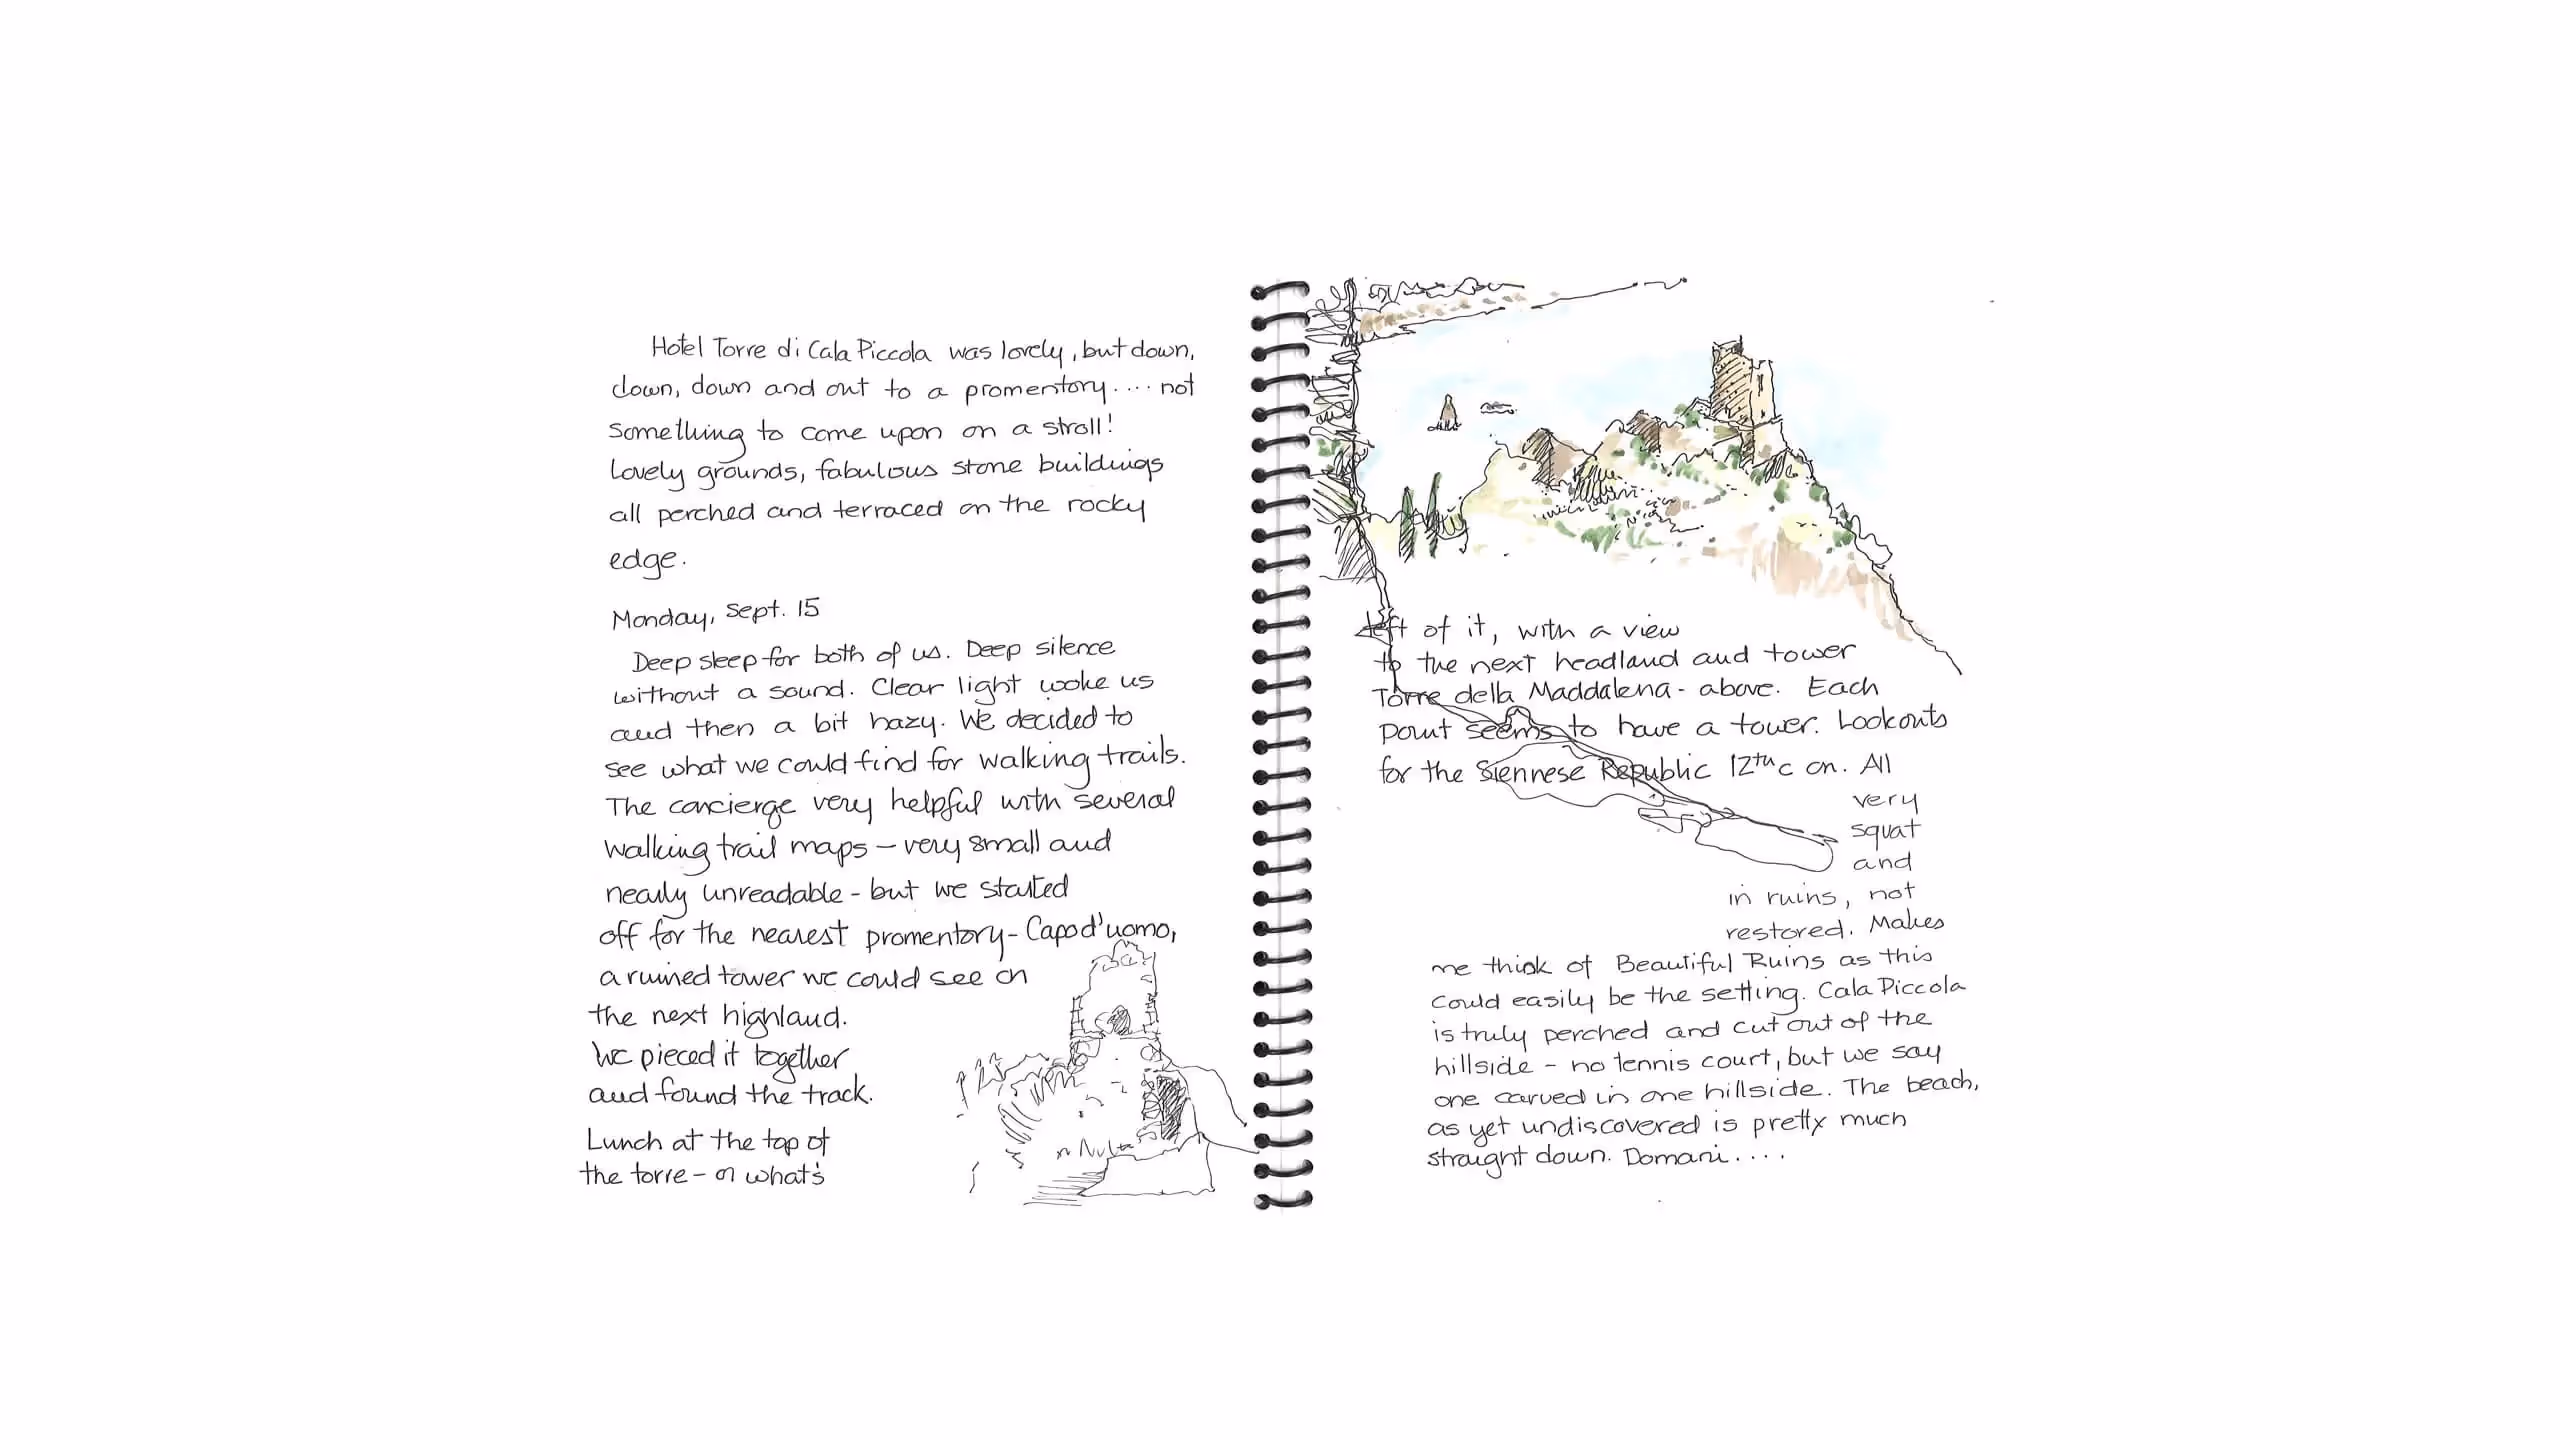 Hotel Torre di Cala Piccola was lovely, but down,
down, down and out to a promentory.... not
something to come upon on a stroll!
Lovely grounds, fabulous stone buildings
all perched and terraced on the rocky
edge.
Monday, Sept. 15
Deep sleep for both of us. Deep silence
without a sound. Clear light woke us
and then a bit hazy. We decided to
see what we could find for walking trails.
The concierge very helpful with several
walking trail maps - very small and
nearly unreadable - but we started
off for the nearest promentory - Capo d'uomo,
a ruined tower we could see on
the next highland.
We pieced it together
and found the track.
Lunch at the top of
the torre - or what's
left of it, with a view
to the next headland and tower
Torre della Maddalena - above. Each
point seems to have a tower. Lookouts
for the Siennese Republic 12th c on. All
very
squat
and
in ruins, not
restored. Makes
me think of Beautiful Ruins as this
could easily be the setting. Cala Piccola
is truly perched and cut out of the
hillside - no tennis court, but we say
one carved in one hillside. The beach,
as yet undiscovered is pretty much
straight down. Domani....